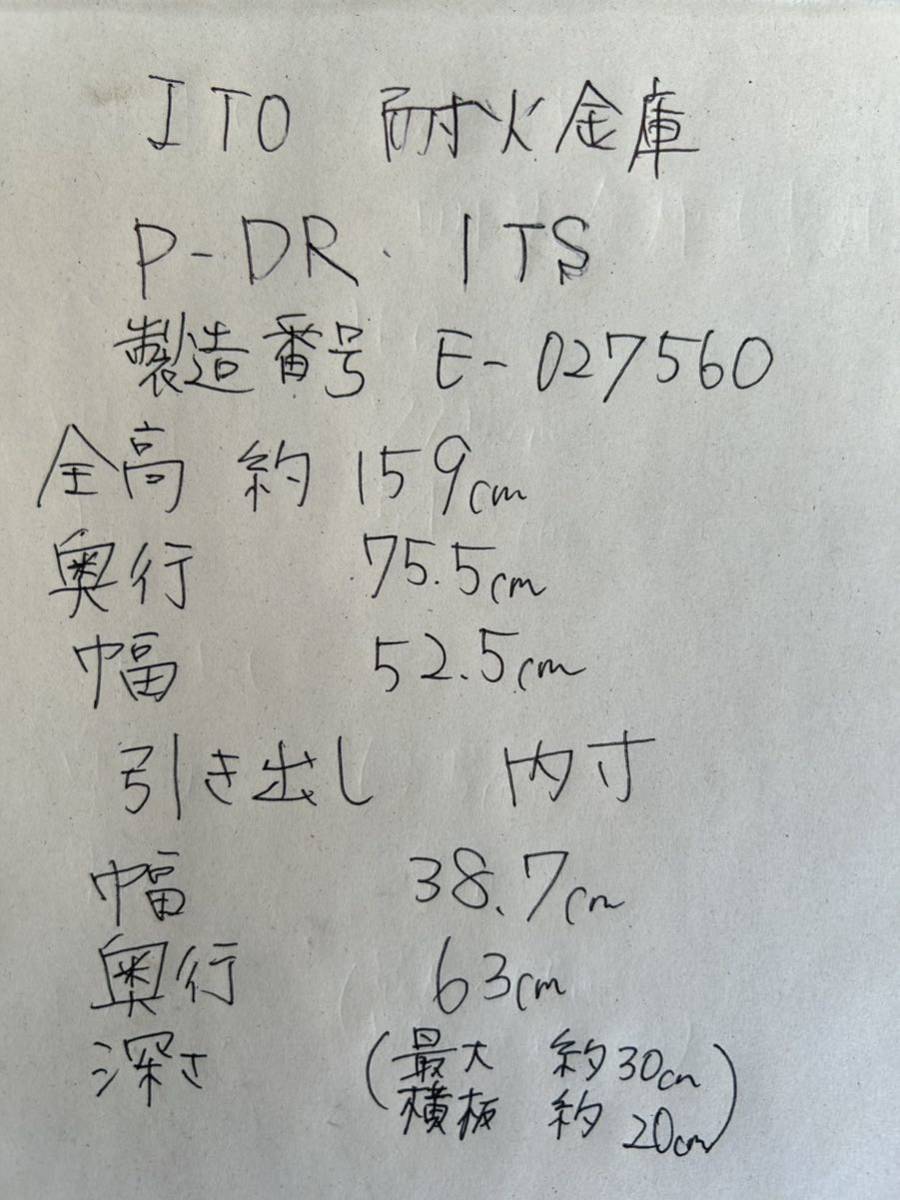 ITO 耐火金庫
P-DR. ITS
製造番号 E-027560
全高 約 159cm
奥行 75.5cm
幅 52.5cm
引き出し 内寸
幅 38.7cm
奥行 63cm
深さ (最大 約30cm
横板 約20cm)